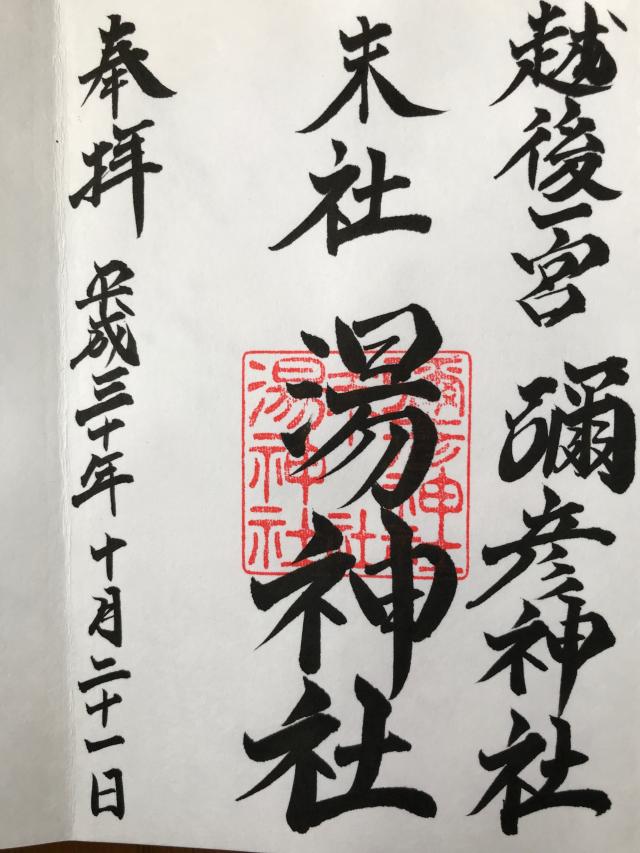 越後一宮 彌彦神社
末社 湯神社
彌彦神社
末社
湯神社
奉拝 平成三十年 十月二十一日